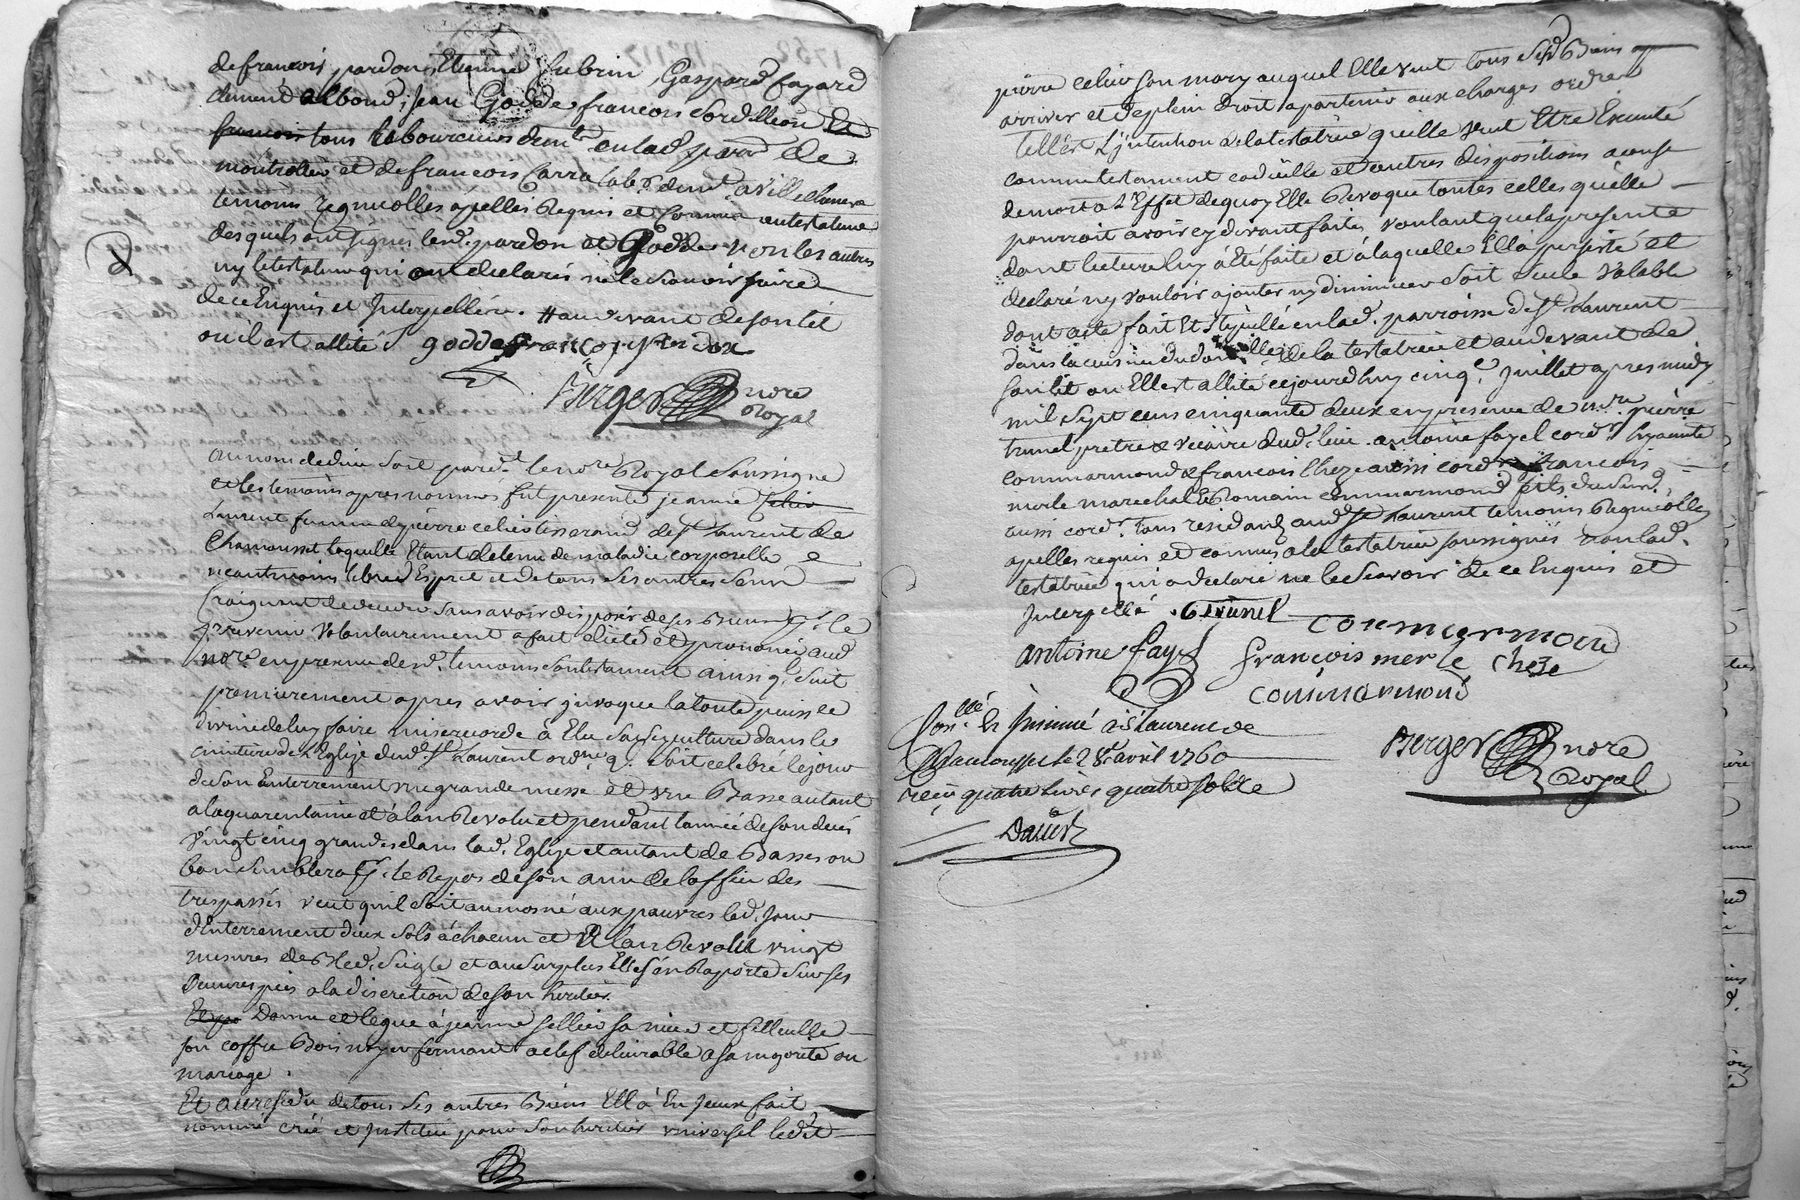 de francois pardon, Etienne Subrin, Gaspard fayard
clement albond, jean Godde francois Cordillon Et
francois tous laboureurs demt en lad. parr. de
montrotier et de francois Carra lab. demt a villechenev
temoins regnicolles apellés Requis et Connus au testateur
desquels ont signés led. pardon et Godde non les autres
ny le testateur qui ont declarés ne le scavoir faire
de ce Enquis et Interpellés. # au devant de son lit
ou il est allité godde francois Pardon
Berger nore
Royal
Au nom de dieu soit pardt le nore Royal soussigné
et les temoins apres nommés fut presente jeanne Celie
Laurent femme de pierre celier tisserand de st Laurent de
Chamousset laquelle Etant detenue de maladie corporelle
neantmoins libre d'Esprit et de tous ses autres sens
Craignant de deceder sans avoir disposer de ses Biens pr le
prevenir volontairement a fait dicté et prononcé aud
nore en presence desd. temoins son testament ainsy q. suit
premierement apres avoir jnvoque la toute puissce
divine de luy faire misericorde à Elu sa sepulture dans le
cimitiere de L'Eglise dud. st Laurent ordne q. soit celebré le jour
de son Enterrement une grande messe et une Basse autant
a la quarentaine et à lan Revolu et pendant lannée de son deces
vingt cinq grandes dans lad. Eglise et autant de Basses ou
bon semblera pr le Repos de son ame de loffice des
trespassés veut quil soit aumosné aux pauvres led. jour
d'Enterrement deux sols à chacun et à lan Revolu vingt
mesures de Bled seigle et au surplus Elle sen Raporte sur ses
oeuvres pies a la discretion de son heritier.
Donne et legue à jeanne sellier sa niece et filleulle
son coffre Bois noyer fermant a clef delivrable a sa majorité ou
mariage.
Et au residu de tous ses autres Biens Ell a En jceux fait
nommé créé et Jnstitué pour son heritier universel ledit
pierre celier son mary auquel Elle veut tous sesd Biens
arriver et de plein droit apartenir aux charges ordres
telle est L'jntention de la testatrice quelle veut Etre Executé
comme testament codicille et autres dispositions a cause
de mort a L'Effet de quoy Elle Revoque toutes celles quelle
pourroit avoir cy devant faites voulant que la presente
dont lecture luy à Eté faite et à laquelle Ell à persisté et
declaré ny vouloir ajouter ny diminuer soit seule valable
dont acte fait Et stipullé en lad. parroisse de st Laurent
dans la cuisine du domicille de la testatrice et au devant de
son lit ou Ell est allité cejourdhuy cinqe juillet apres midy
mil sept cens cinquante deux en presence de mre pierre
trunel pretre & vicaire dud. lieu antoine fayel cordr hyacinte
commarmond & francois Cheze aussi cordr francois
merle marechal & Romain commarmond fils dud.
aussi cordr tous residants aud st Laurent temoins Regnicolles
apelles requis et connus a la testatrice soussignés non lad.
testatrice qui a declaré ne le scavoir de ce Enquis et
Interpellé. Trunel commermond
antoine fay francois merle cheze
commarmond
Berger nore
Royal
Conllé Et jnsinué à St Laurent de
Chamousset le 28 avril 1760
recu quatre livres quatre sols